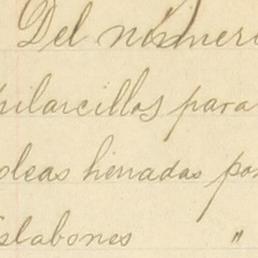 Del número
pilarcillos para
oleas henadas por
eslabones "